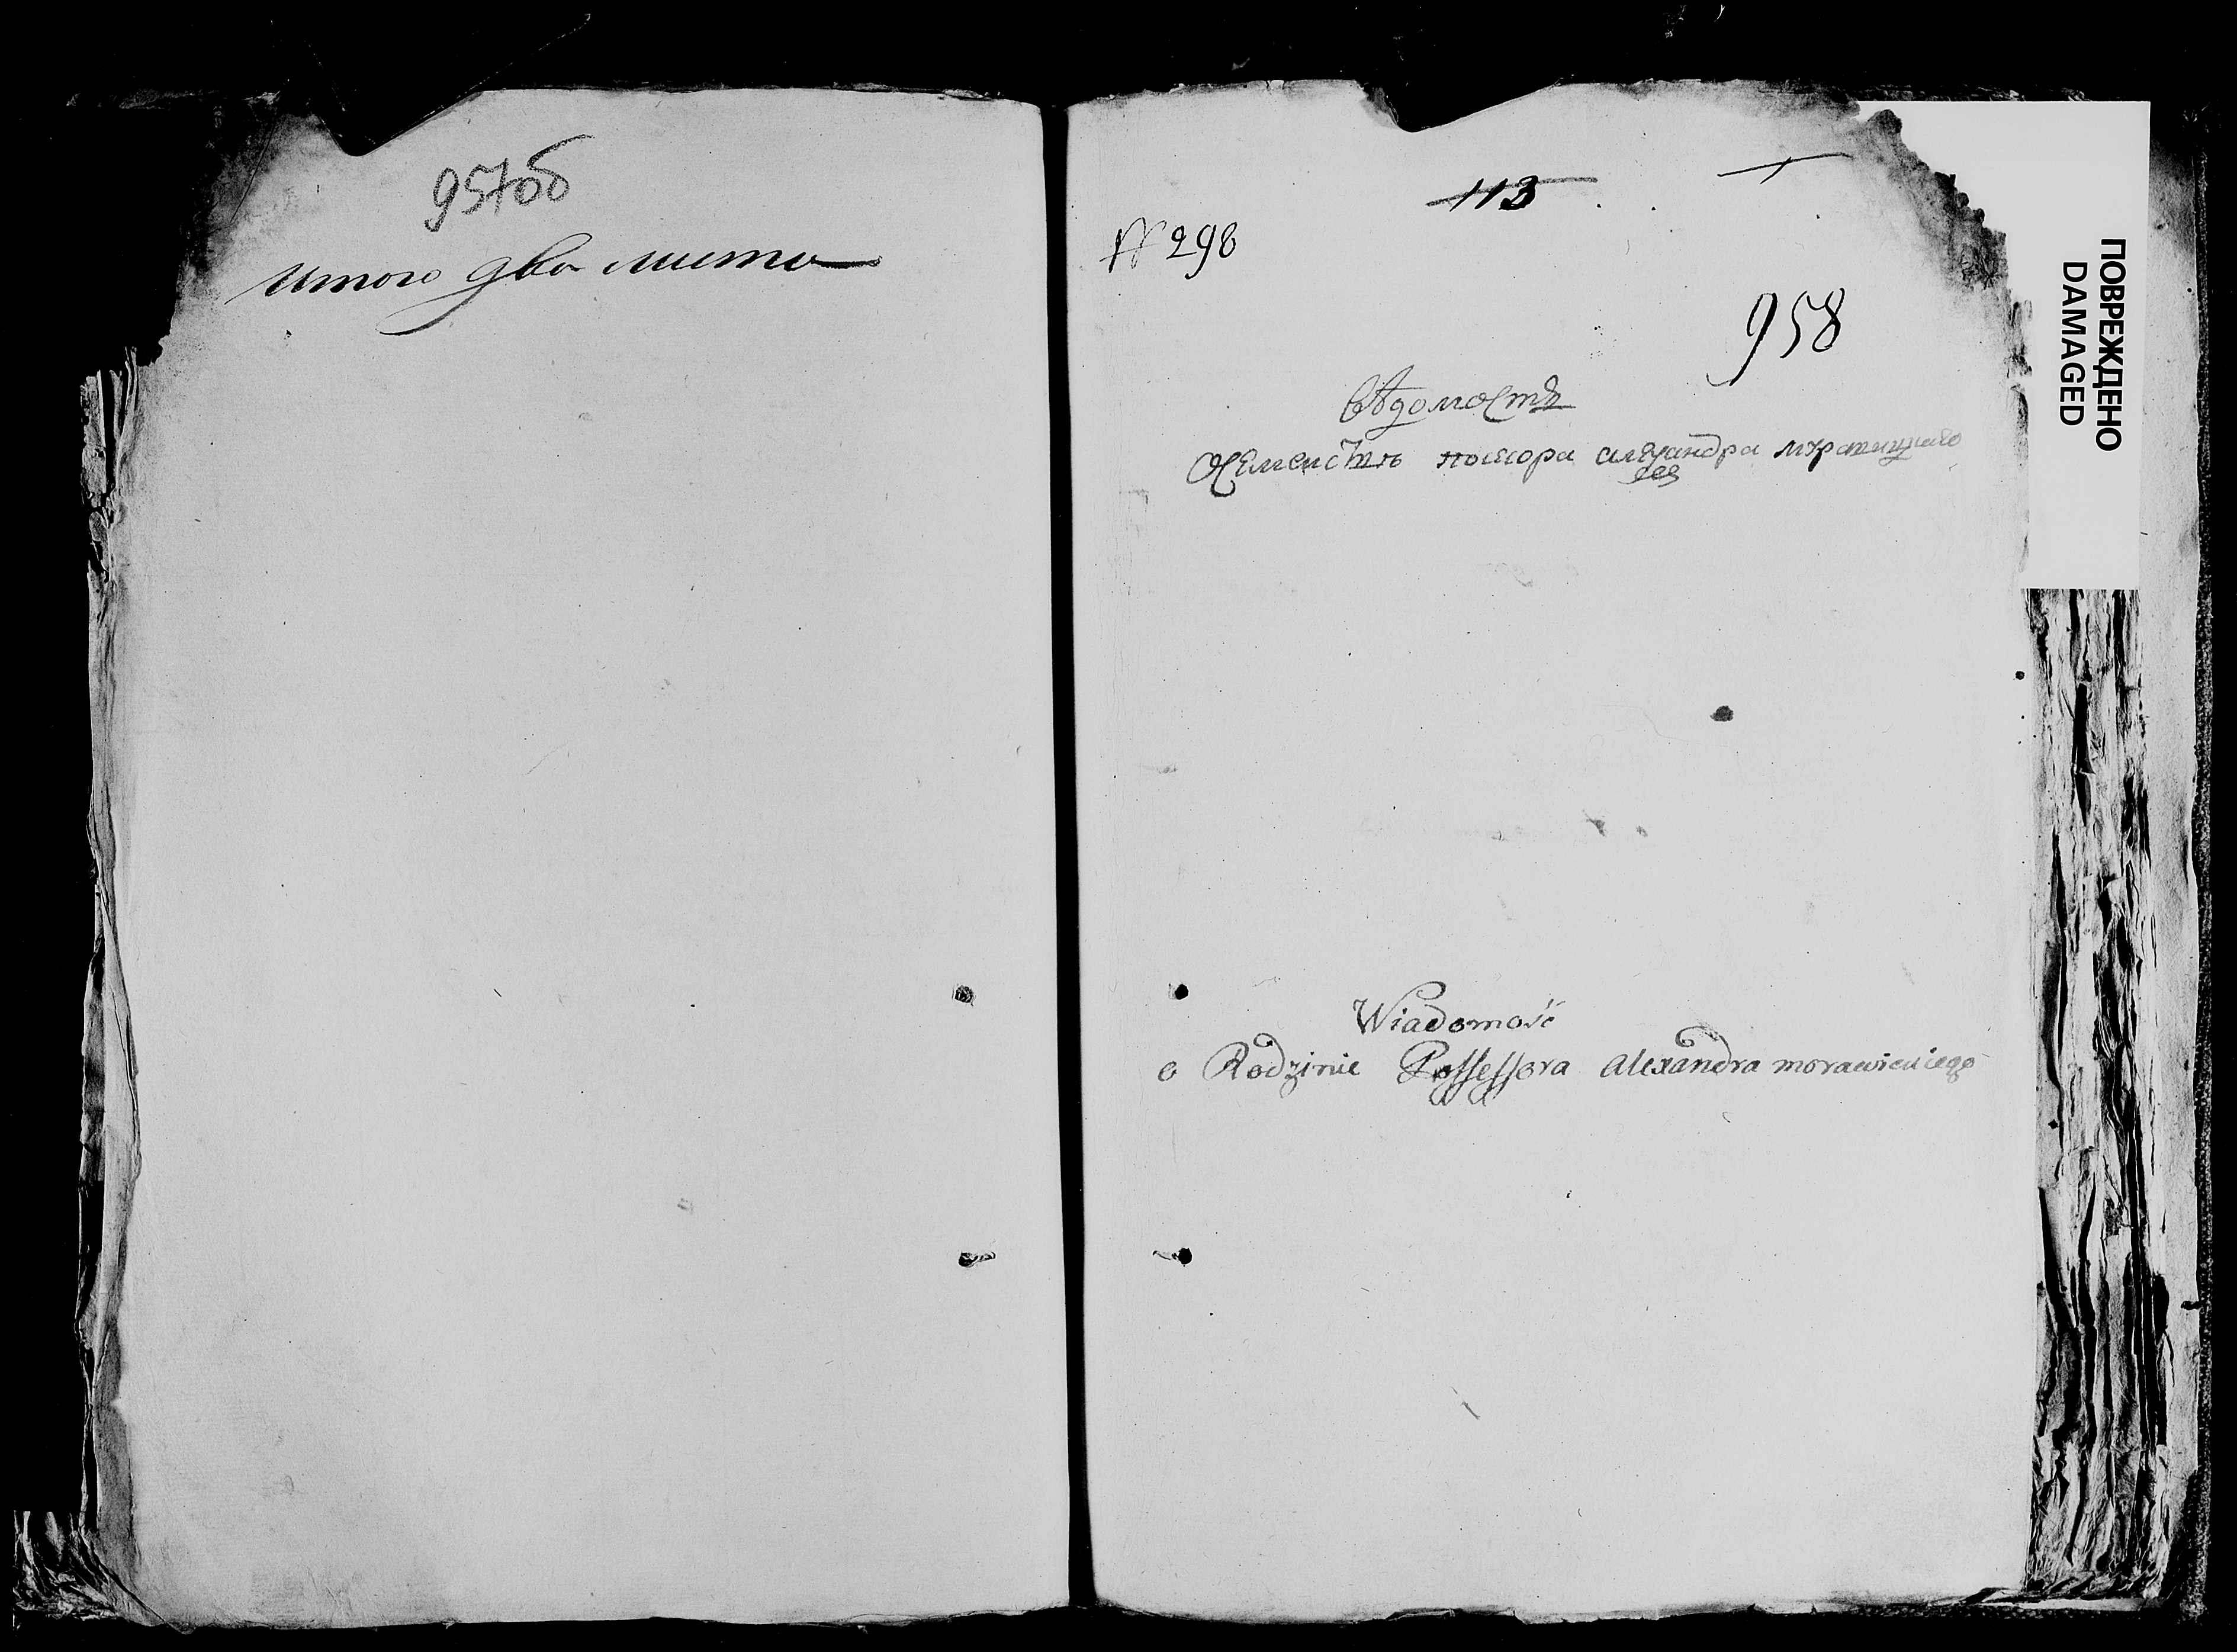 957об
итого два листа
113
№ 298
958
Вѣдомость
О Семействѣ посесора Александра
Wiadomość
o Rodzinie Possessora Alexandra Morawickiego
ПОВРЕЖДЕНО
DAMAGED